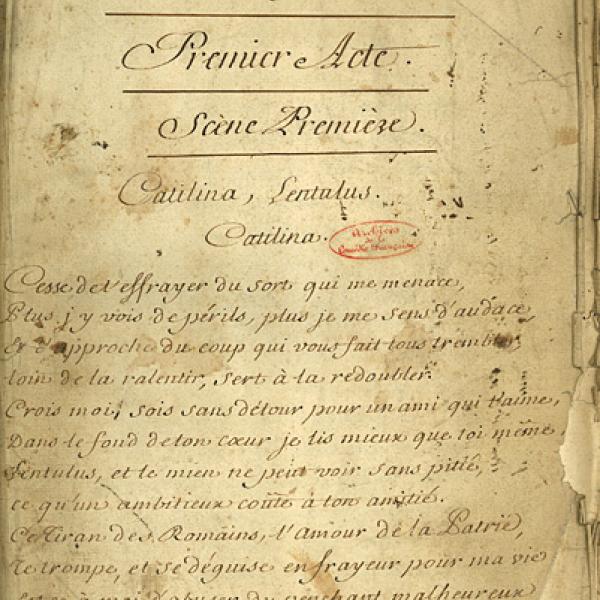 Premier Acte.
Scène Première.
Catilina, Lentulus.
Catilina.
Archives
de la
Comédie Française
Cesse de t'effrayer du sort qui me menace,
Plus j'y vois de périls, plus je me sens d'audace,
Et l'approche du coup qui vous fait tous trembler,
loin de la ralentir, sert à la redoubler.
Crois moi, sois sans détour pour un ami qui t'aime,
Dans le fond de ton cœur je lis mieux que toi même,
Lentulus, et le mien ne peut voir sans pitié,
ce qu'un ambitieux coûte à ton amitié.
Ce Tiran des Romains, l'amour de la Patrie,
te trompe, et se déguise en frayeur pour ma vie
à moi d'abuser du penchant malheureux